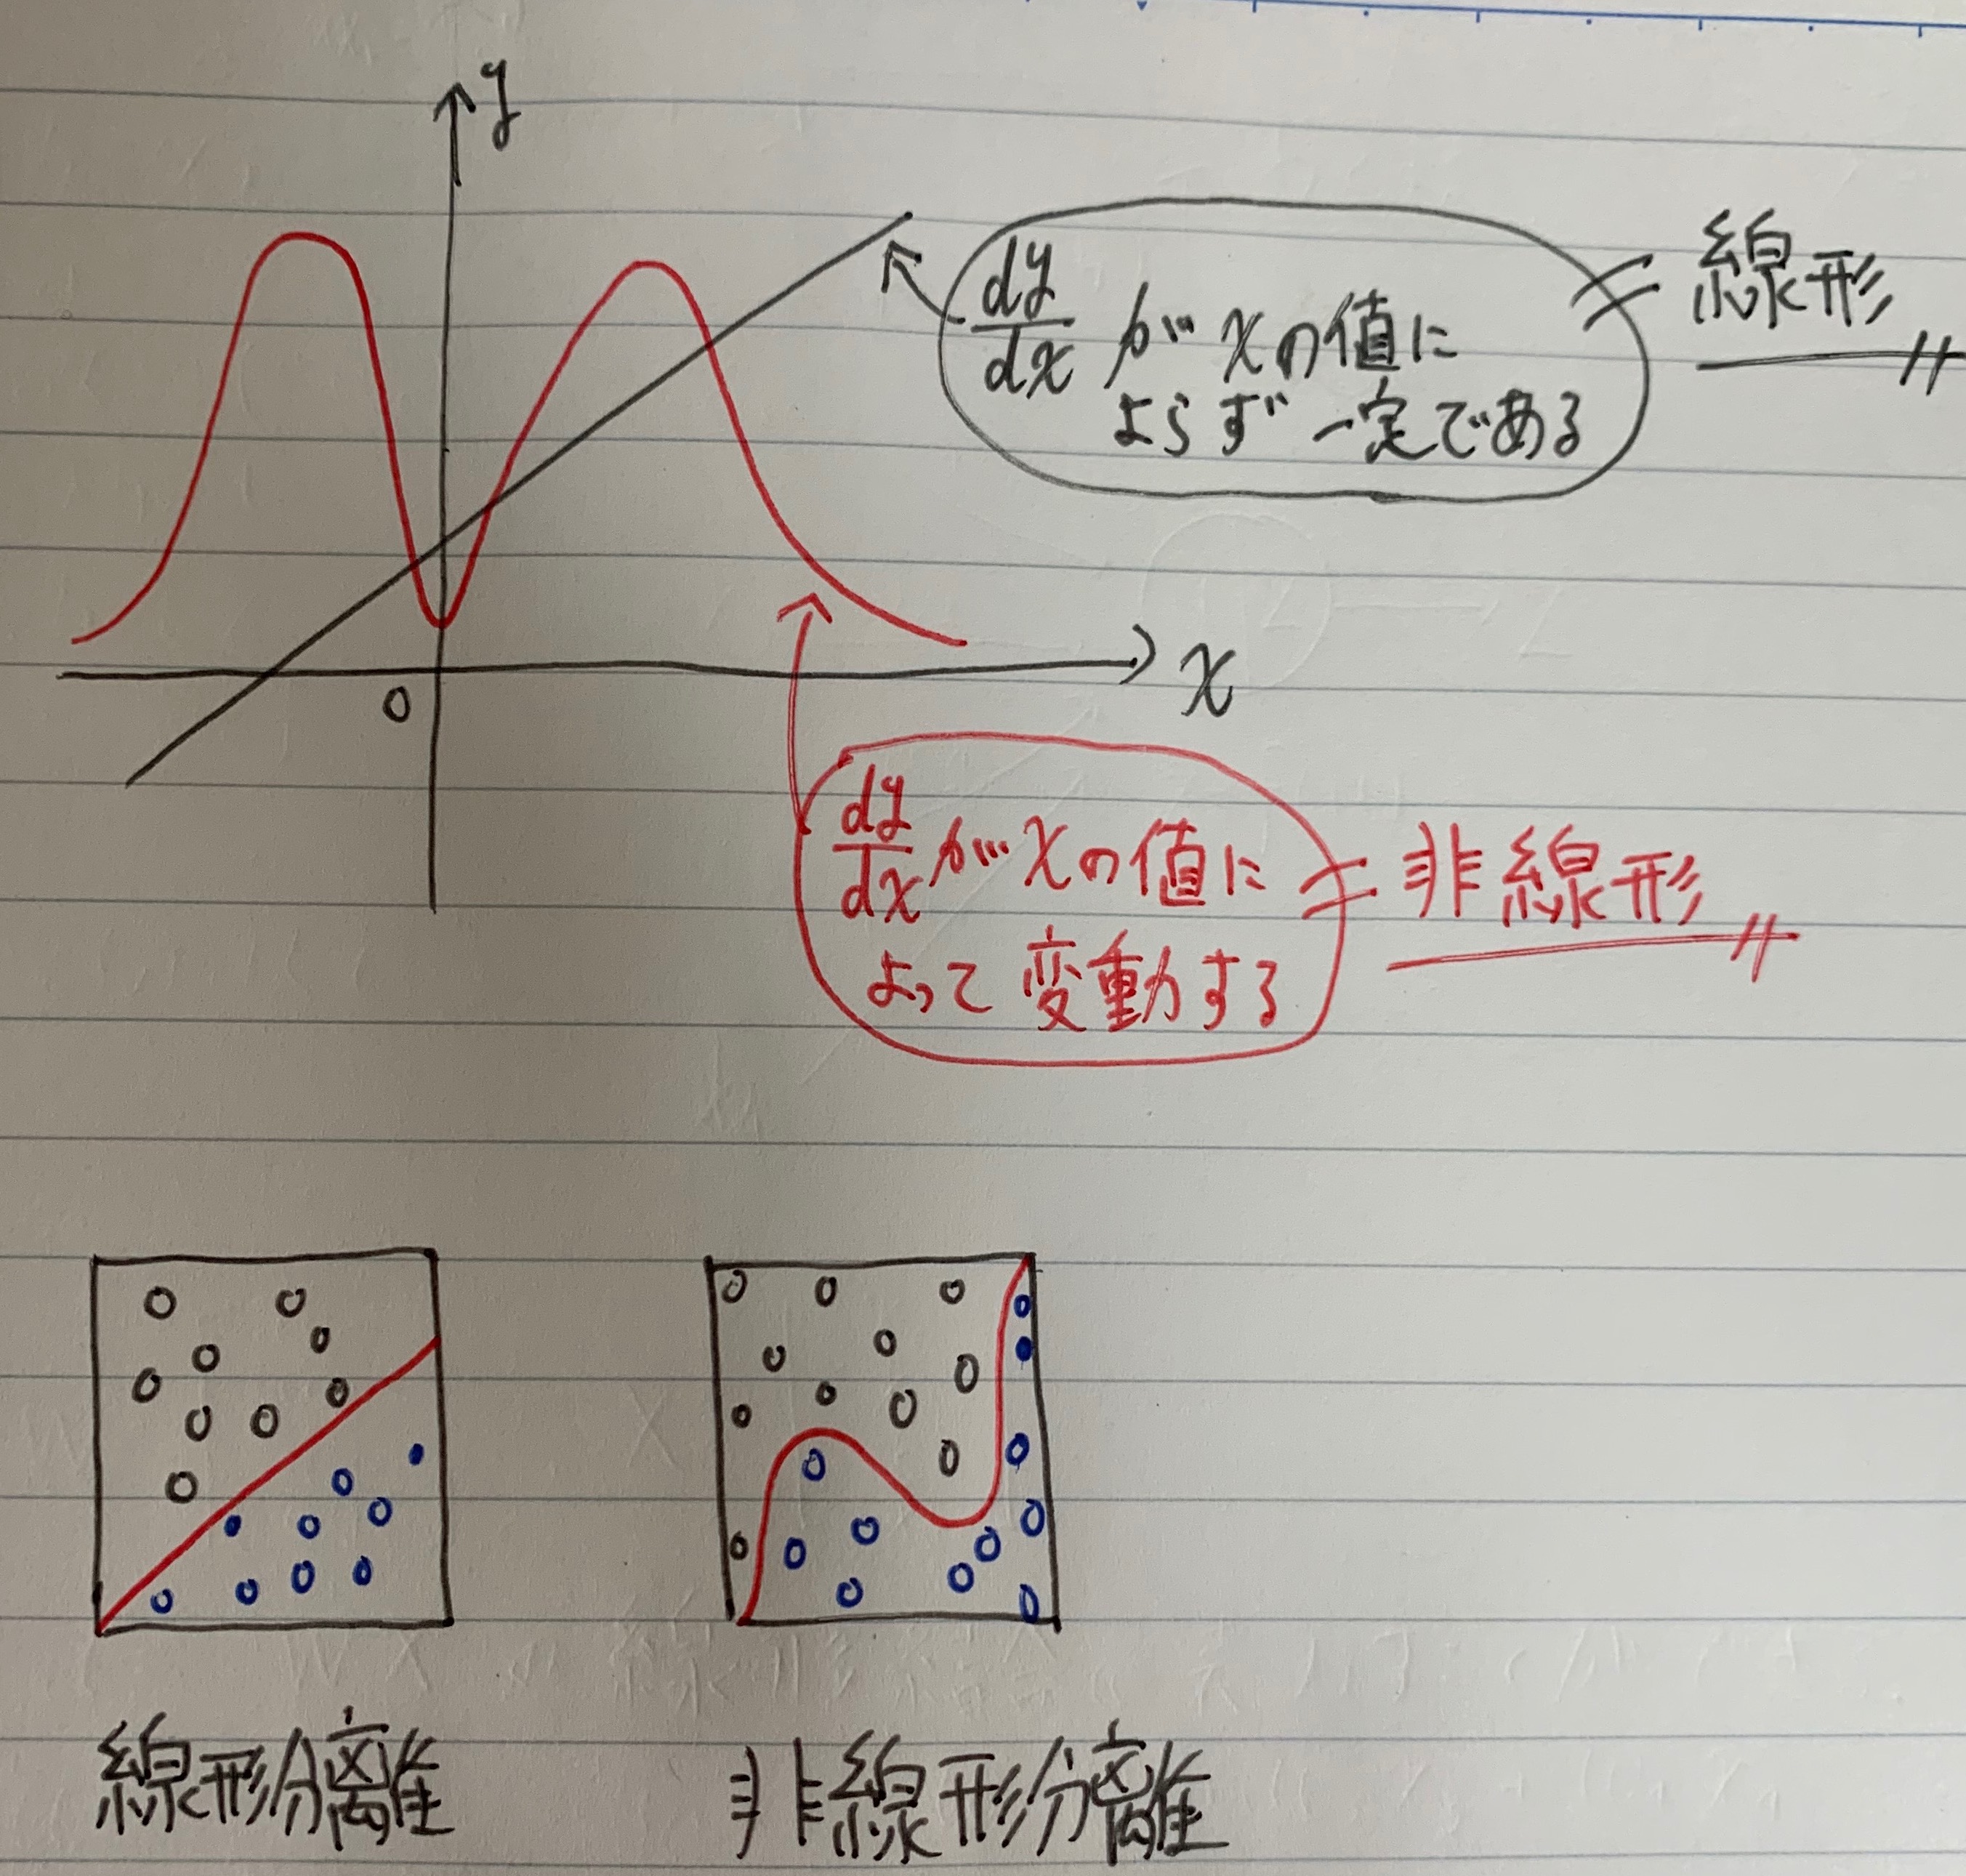 y
dy/dx が xの値に
よらず 一定である
= 線形
0
x
dy/dx が xの値に
よって 変動する
= 非線形
線形分離
非線形分離